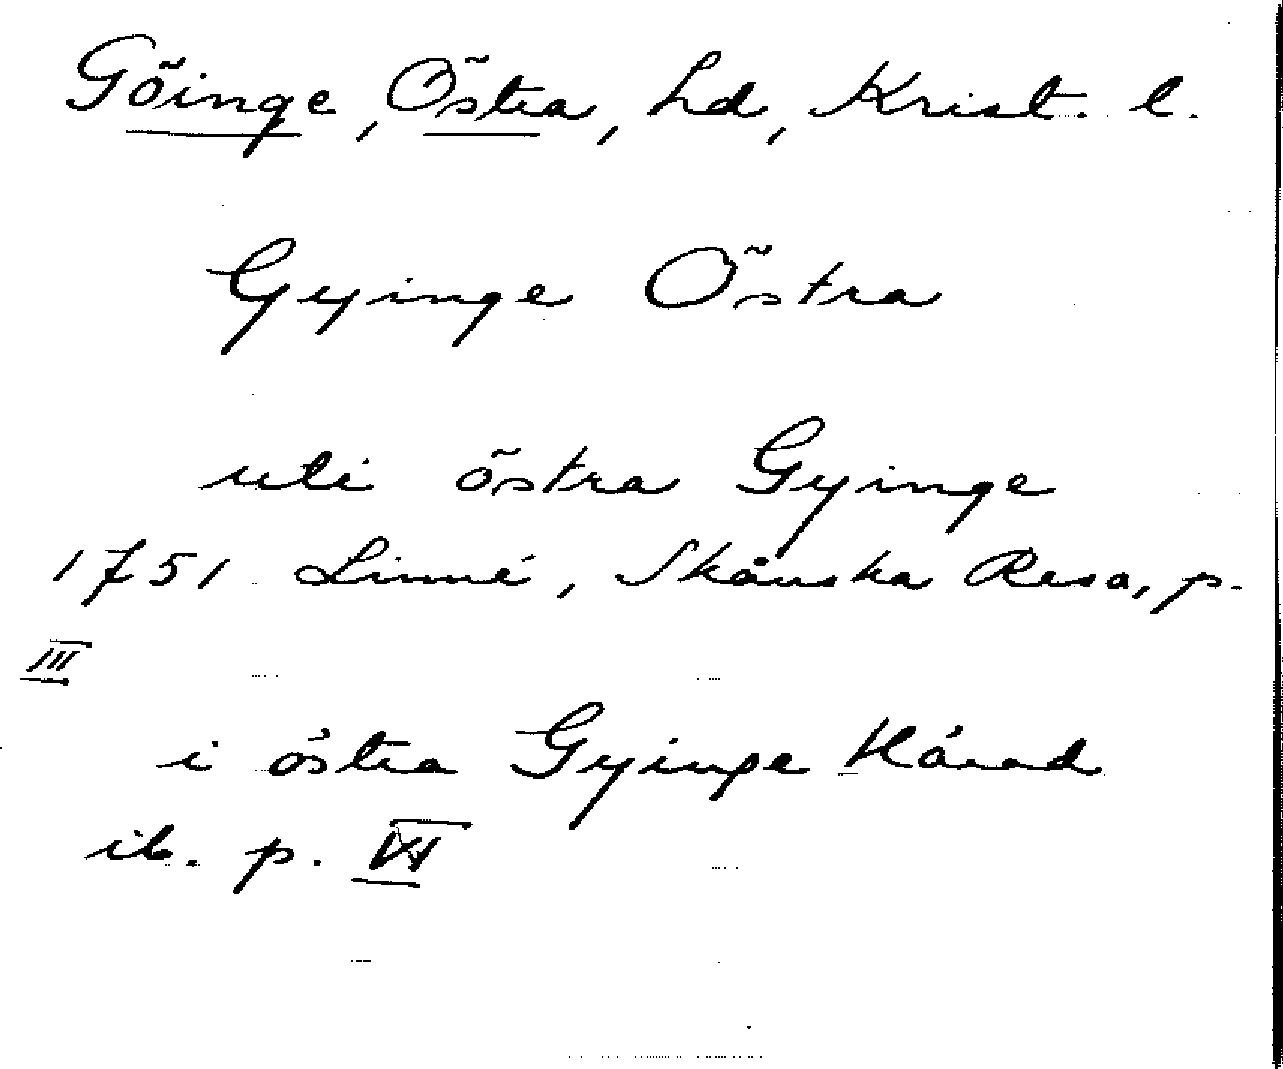 Göinge, Östra, hd, Krist. l.
Gyinge Östra
uti östra Gyinge
1751 Linné, Skånska Resa, p.
III
i östra Gyinge Härad
ib. p.